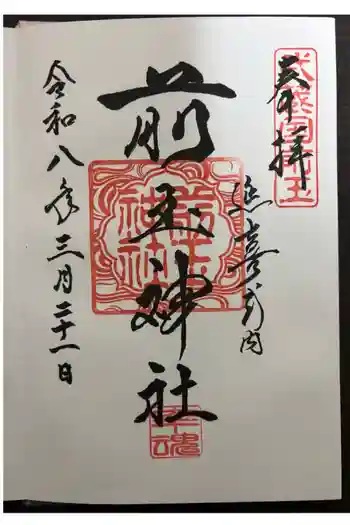 奉拝
武蔵国埼玉
延喜式内
前玉神社
前玉神社
幸魂
令和八年三月二十一日